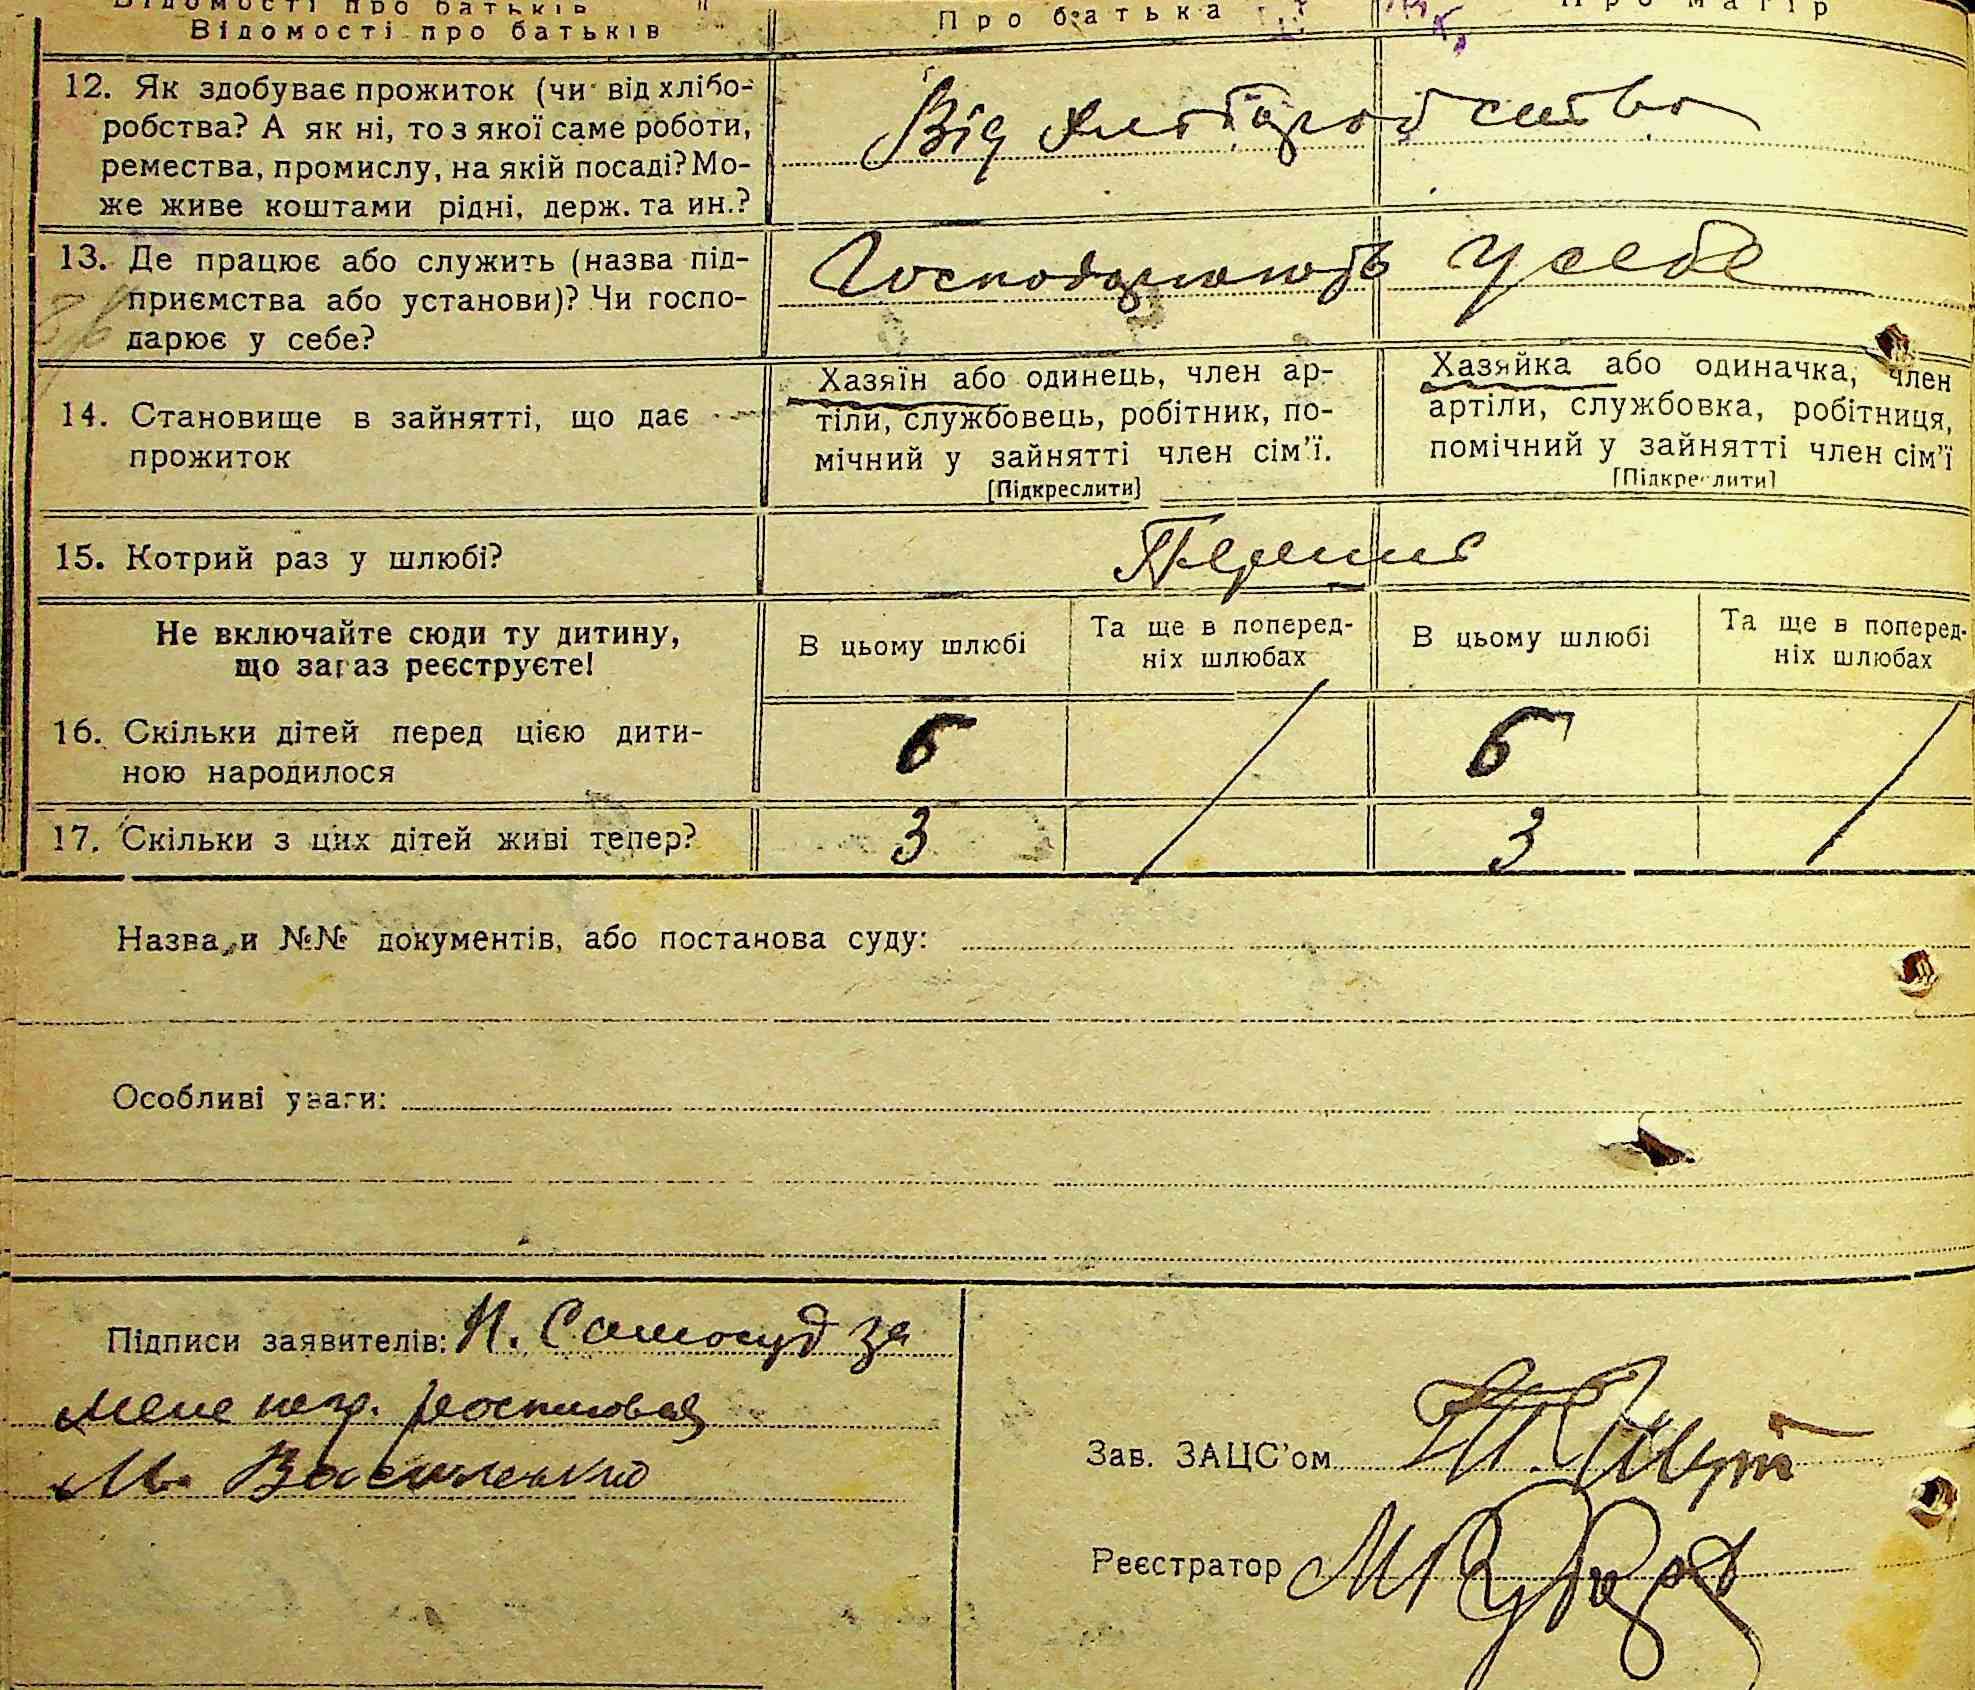 Відомості про батьків
Відомості про батьків Про батька Про матір
12. Як здобуває прожиток (чи від хлібо-
робства? А як ні, то з якої саме роботи,
ремества, промислу, на якій посаді? Мо-
же живе коштами рідні, держ. та ин.?
Від хліборобства
13. Де працює або служить (назва під-
приємства або установи)? Чи госпо-
дарює у себе?
Господарюють у себе
14. Становище в зайнятті, що дає
прожиток
Хазяїн або одинець, член ар-
тіли, службовець, робітник, по-
мічний у зайнятті член сім'ї.
[Підкреслити]
Хазяйка або одиначка, член
артіли, службовка, робітниця,
помічний у зайнятті член сім'ї
[Підкреслити]
15. Котрий раз у шлюбі?
Перший
Не включайте сюди ту дитину,
що зараз реєструєте!
В цьому шлюбі
Та ще в поперед-
ніх шлюбах
В цьому шлюбі
Та ще в поперед-
ніх шлюбах
16. Скільки дітей перед цією дити-
ною народилося
6 6
17. Скільки з цих дітей живі тепер? 3 3
Назва и №№ документів, або постанова суду:
Особливі уваги:
Підписи заявителів: П. Самосуд за
мене негр. росписовся
М. Василенко
Зав. ЗАЦС'ом
Реєстратор